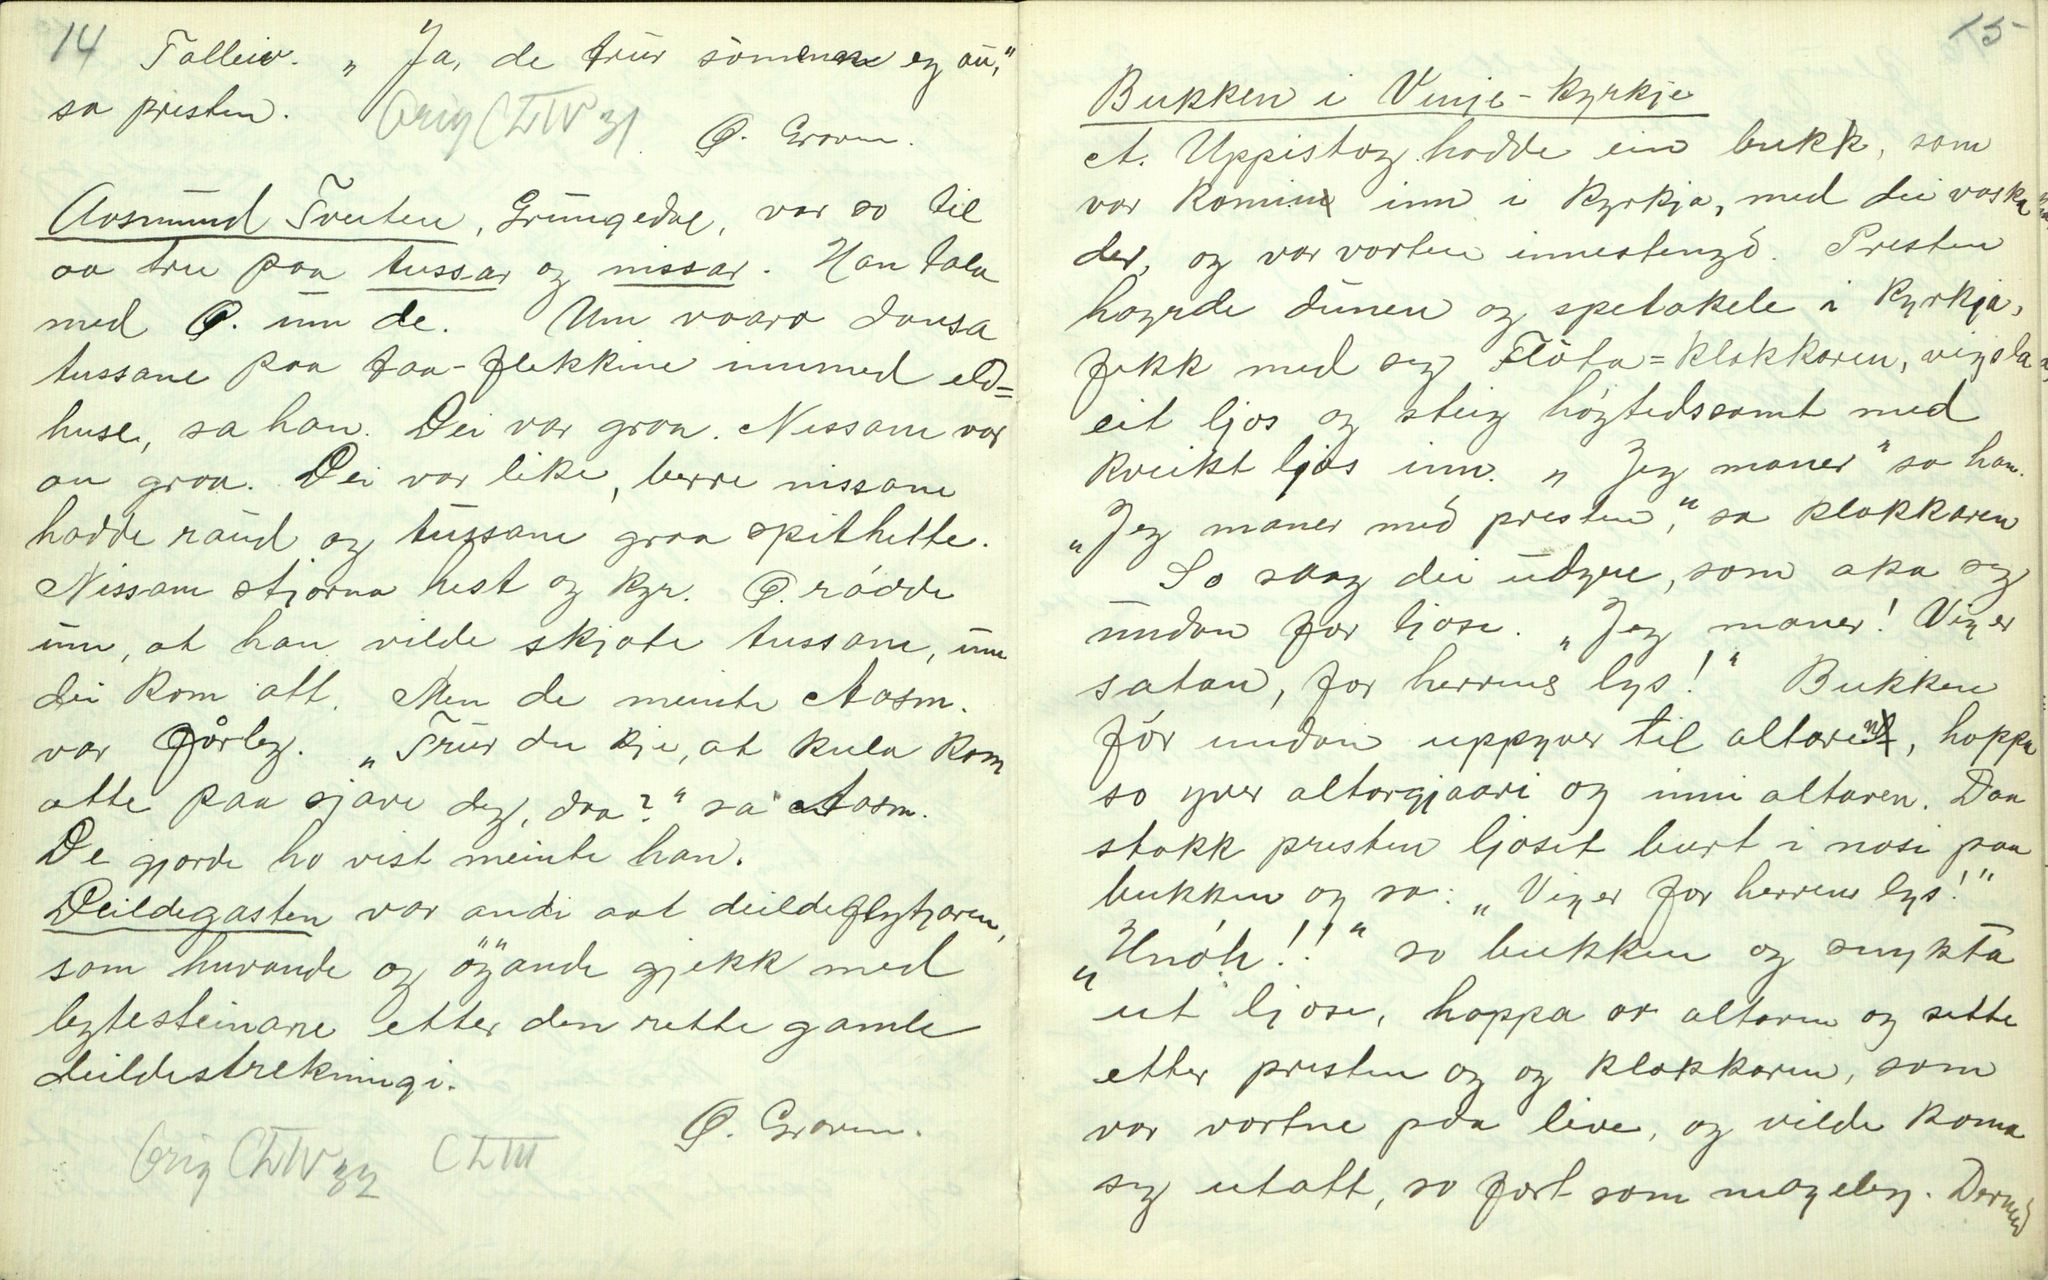 14
Talleiv. „Ja, de trur sömme eg au,"
sa presten.
Orig CL IV 31
Ø. Graven.
Aasmund Tveiten, Grungedal, var so til
aa tru paa tussar og nissar. Han tala
med Ø. um de. Um vaara dansa
tussane paa taa-flekkine innmed eld=
huse, sa han. Dei var graa. Nissane var
au graa. Dei var like, berre nissane
hadde raud og tussane graa spithette.
Nissane stjorna hest og kyr. Ø. rödde
um, at han vilde skjote tussane, um
dei kom att. Men de meinte Aasm.
var fårleg. „Trur du kje, at kula kom
atte paa sjave deg, daa?" sa Aasm.
De gjorde ho vist meinte han.
Deildegasten var andi aat deildeflytjaren,
som huvande og öyande gjekk med
lytesteinane etter den rette gamle
deildestrekningi.
Ø. Graven.
Orig CL IV 32 CL III
15
Bukken i Vinje-kyrkje
A. Uppistog hadde ein bukk, som
var komin inn i kyrkja, med dei vaska
der, og var vorten innestengd. Presten
høyrde dunen og spetakele i kyrkja,
fekk med seg Flöta=klokkaren, vigsla
eit ljos og steig högtidssamt med
kveikt ljos inn. „Jeg maner" sa han.
„Jeg maner med presten," sa klokkaren
So saag dei udyre, som aka seg
undan for ljose. „Jeg maner! Viger
satan, for herrens lys!" Bukken
fór undan uppyver til altaret, hoppa
so yver altargjaari og inni altaren. Daa
stakk presten ljoset burt i nosi paa
bukken og sa: „Viger for herrens lys!"
„Hnóh!!" sa bukken og snykta
ut ljose, hoppa or altaren og sette
etter presten og og klokkaren, som
var vortne paa live, og vilde koma
seg utatt, so fort som mogeleg. Dermed